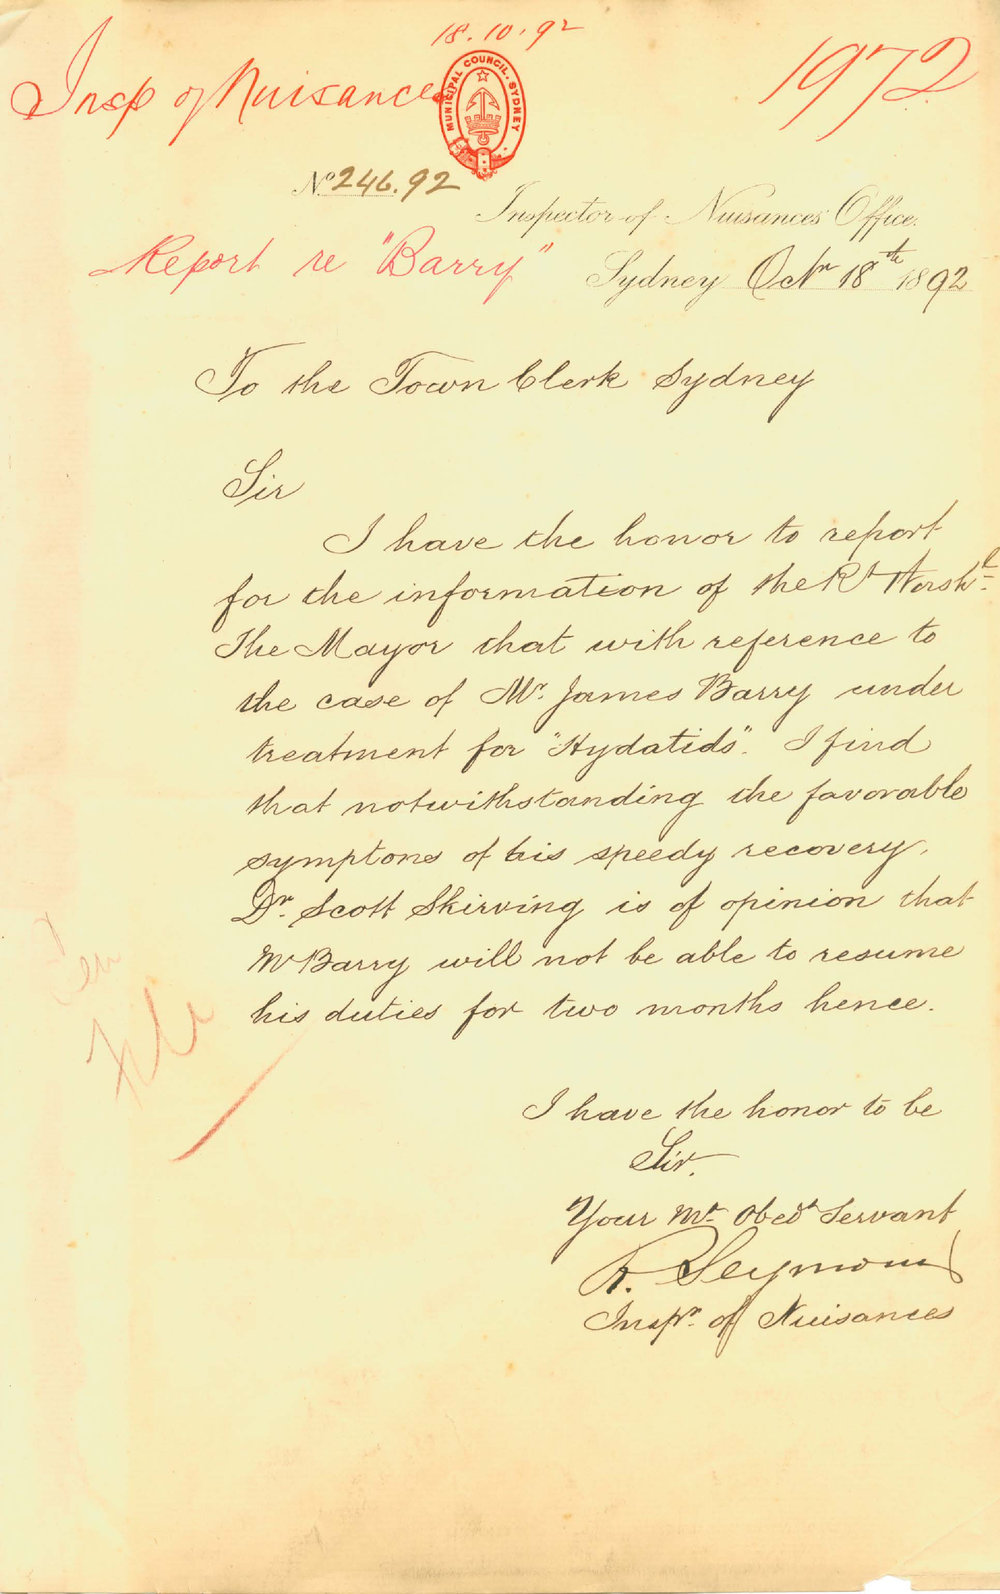 18.10.92
Insp of Nuisances
MUNICIPAL COUNCIL. SYDNEY
1972
No 246.92
Inspector of Nuisances Office.
Report re "Barry"
Sydney Octr 18th 1892
To the Town Clerk Sydney
Sir
I have the honor to report
for the information of the Rt Worshl
The Mayor that with reference to
the case of Mr. James Barry under
treatment for "Hydatids". I find
that notwithstanding the favorable
symptoms of his speedy recovery.
Dr. Scott Skirving is of opinion that
Mr Barry will not be able to resume
his duties for two months hence.
I have the honor to be
Sir.
Your Mt Obedt Servant
R. Seymour
Inspr. of Nuisances